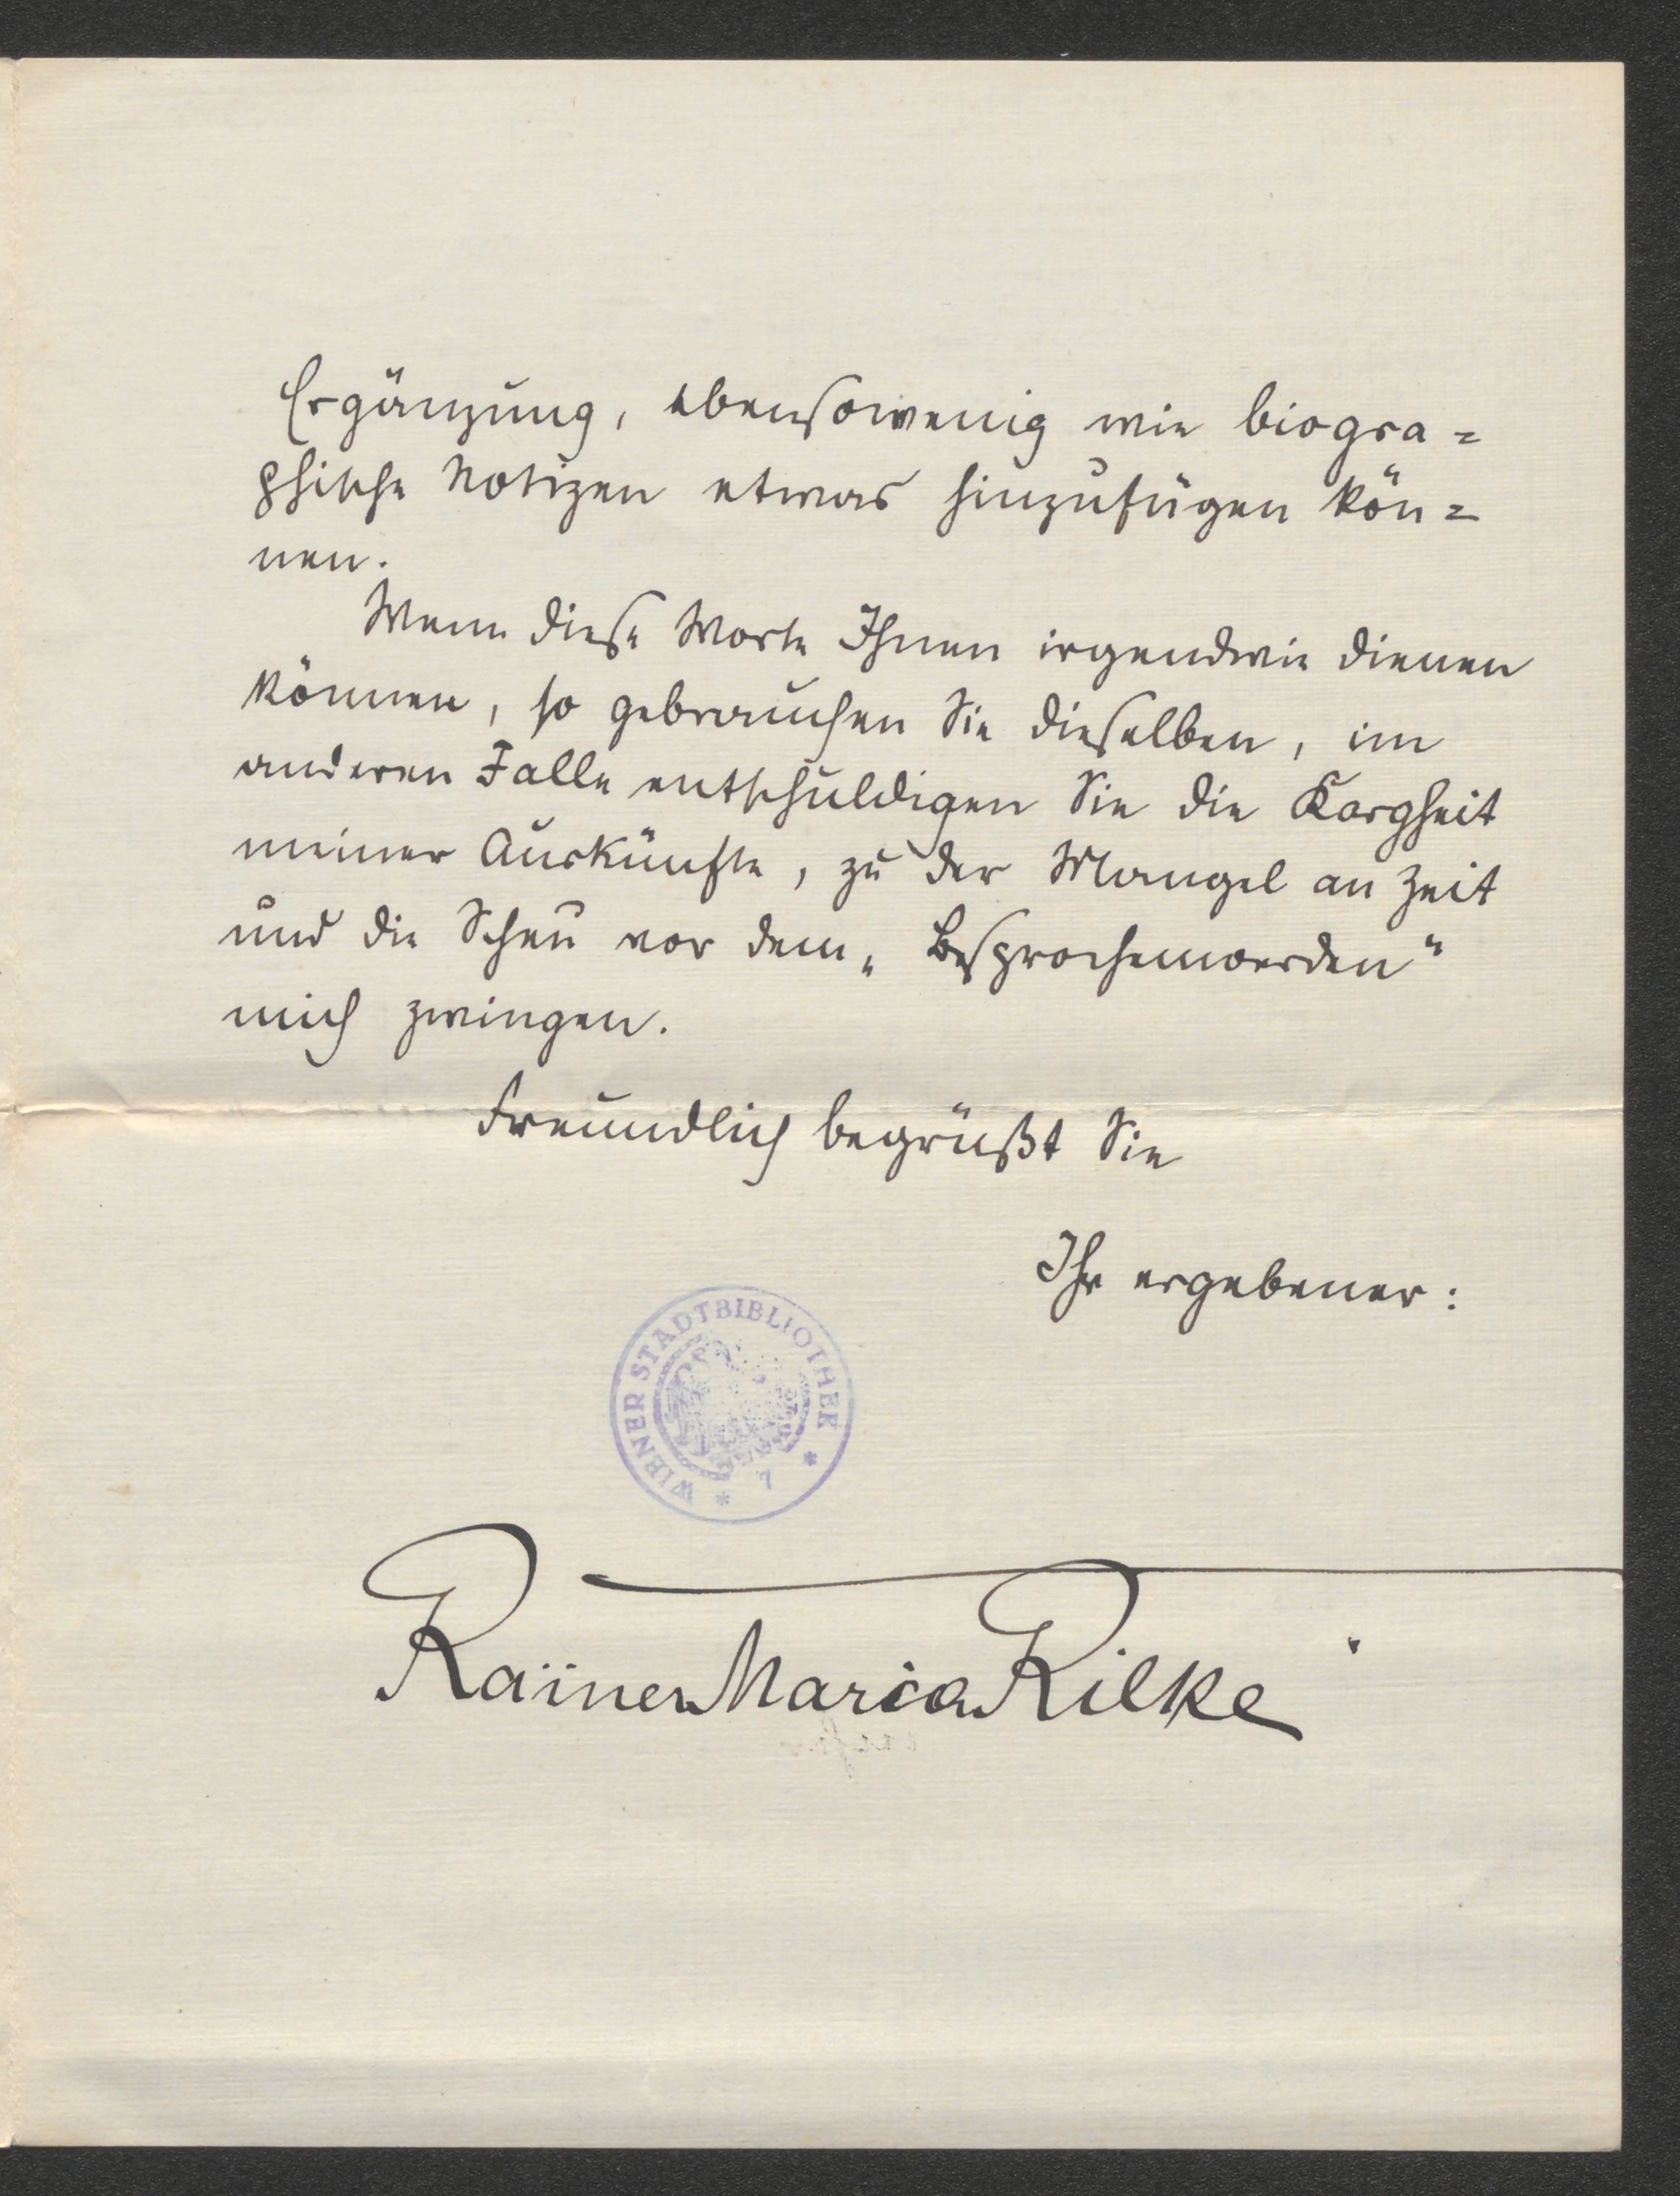 Ergänzung, ebensowenig wie biogra=
phische Notizen etwas hinzufügen kön=
nen.
Wenn diese Worte Ihnen irgendwie dienen
können, so gebrauchen Sie dieselben, im
anderen Falle entschuldigen Sie die Kargheit
meiner Auskünfte, zu der Mangel an Zeit
und die Scheu vor dem „Besprochenwerden“
mich zwingen.
Freundlich begrüßt Sie
Ihr ergebener:
WIENER STADTBIBLIOTHEK
* 7 *
Rainer Maria Rilke